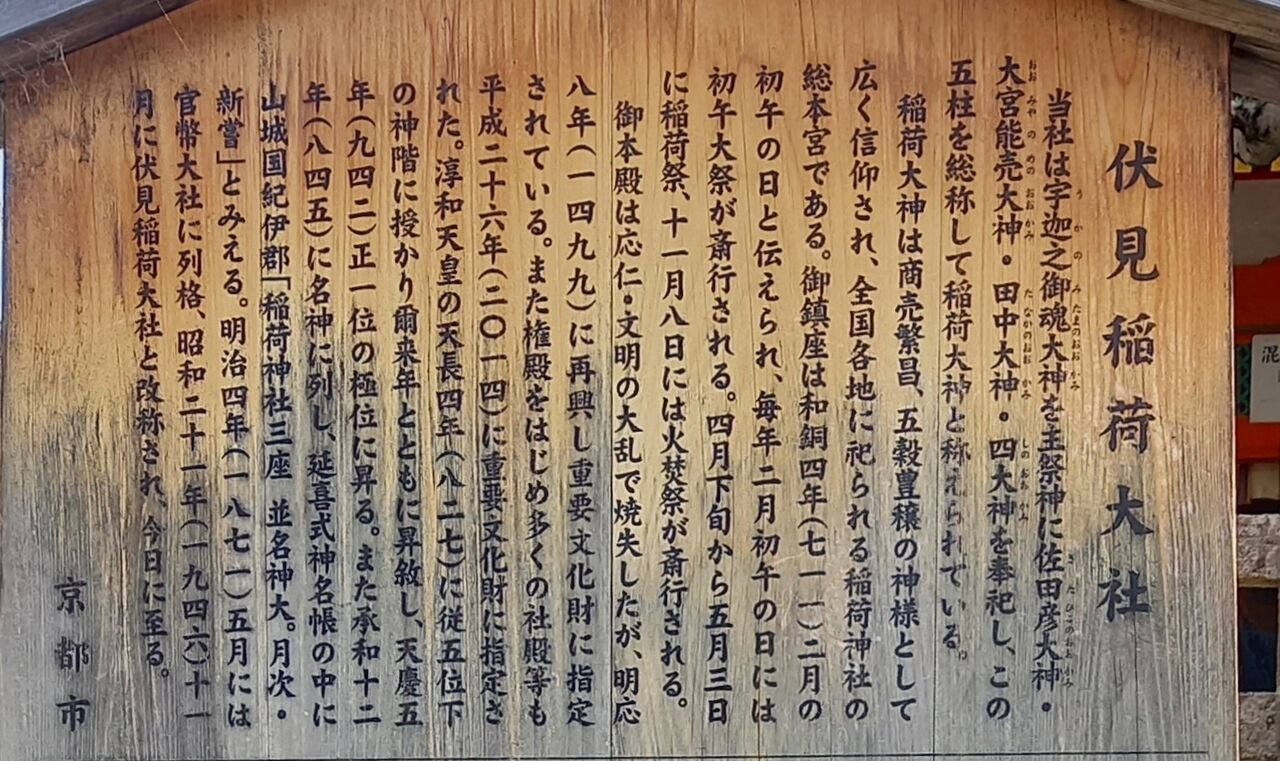 伏見稲荷大社
当社は宇迦之御魂大神を主祭神に佐田彦大神・
大宮能売大神・田中大神・四大神を奉祀し、この
五柱を総称して稲荷大神と称えられている。
稲荷大神は商売繁昌、五穀豊穣の神様として
広く信仰され、全国各地に祀られる稲荷神社の
総本宮である。御鎮座は和銅四年(七一一)二月の
初午の日と伝えられ、毎年二月初午の日には
初午大祭が斎行される。四月下旬から五月三日
に稲荷祭、十一月八日には火焚祭が斎行される。
御本殿は応仁・文明の大乱で焼失したが、明応
八年(一四九九)に再興し重要文化財に指定
されている。また権殿をはじめ多くの社殿等も
平成二十六年(二〇一四)に重要文化財に指定さ
れた。淳和天皇の天長四年(八二七)に従五位下
の神階に授かり爾来年とともに昇敘し、天慶五
年(九四二)正一位の極位に昇る。また承和十二
年(八四五)に名神に列し、延喜式神名帳の中に
山城国紀伊郡「稲荷神社三座 並名神大。月次・
新嘗」とみえる。明治四年(一八七一)五月には
官幣大社に列格、昭和二十一年(一九四六)十一
月に伏見稲荷大社と改称され、今日に至る。
京都市
混